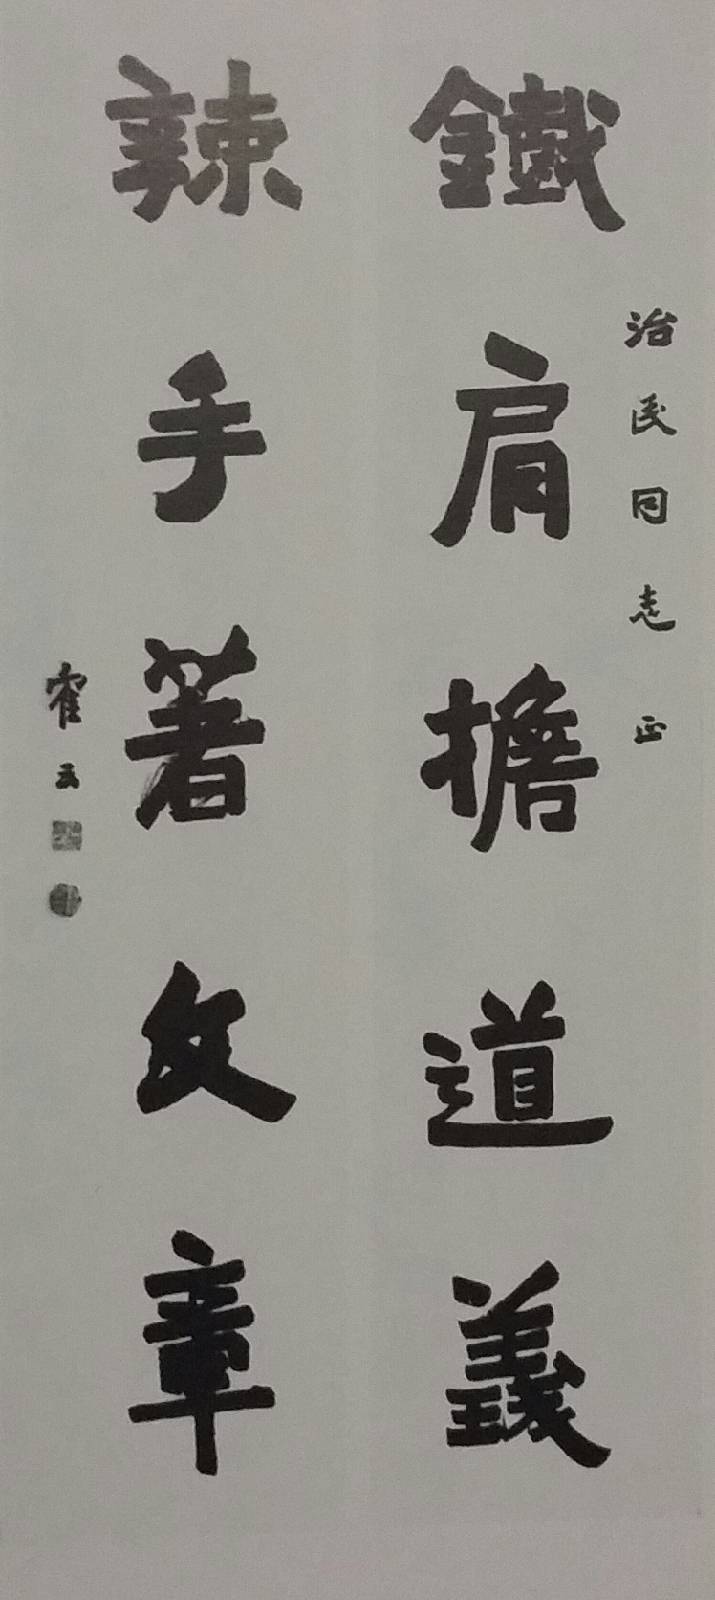 治民同志正
鐵肩擔道義
辣手著文章